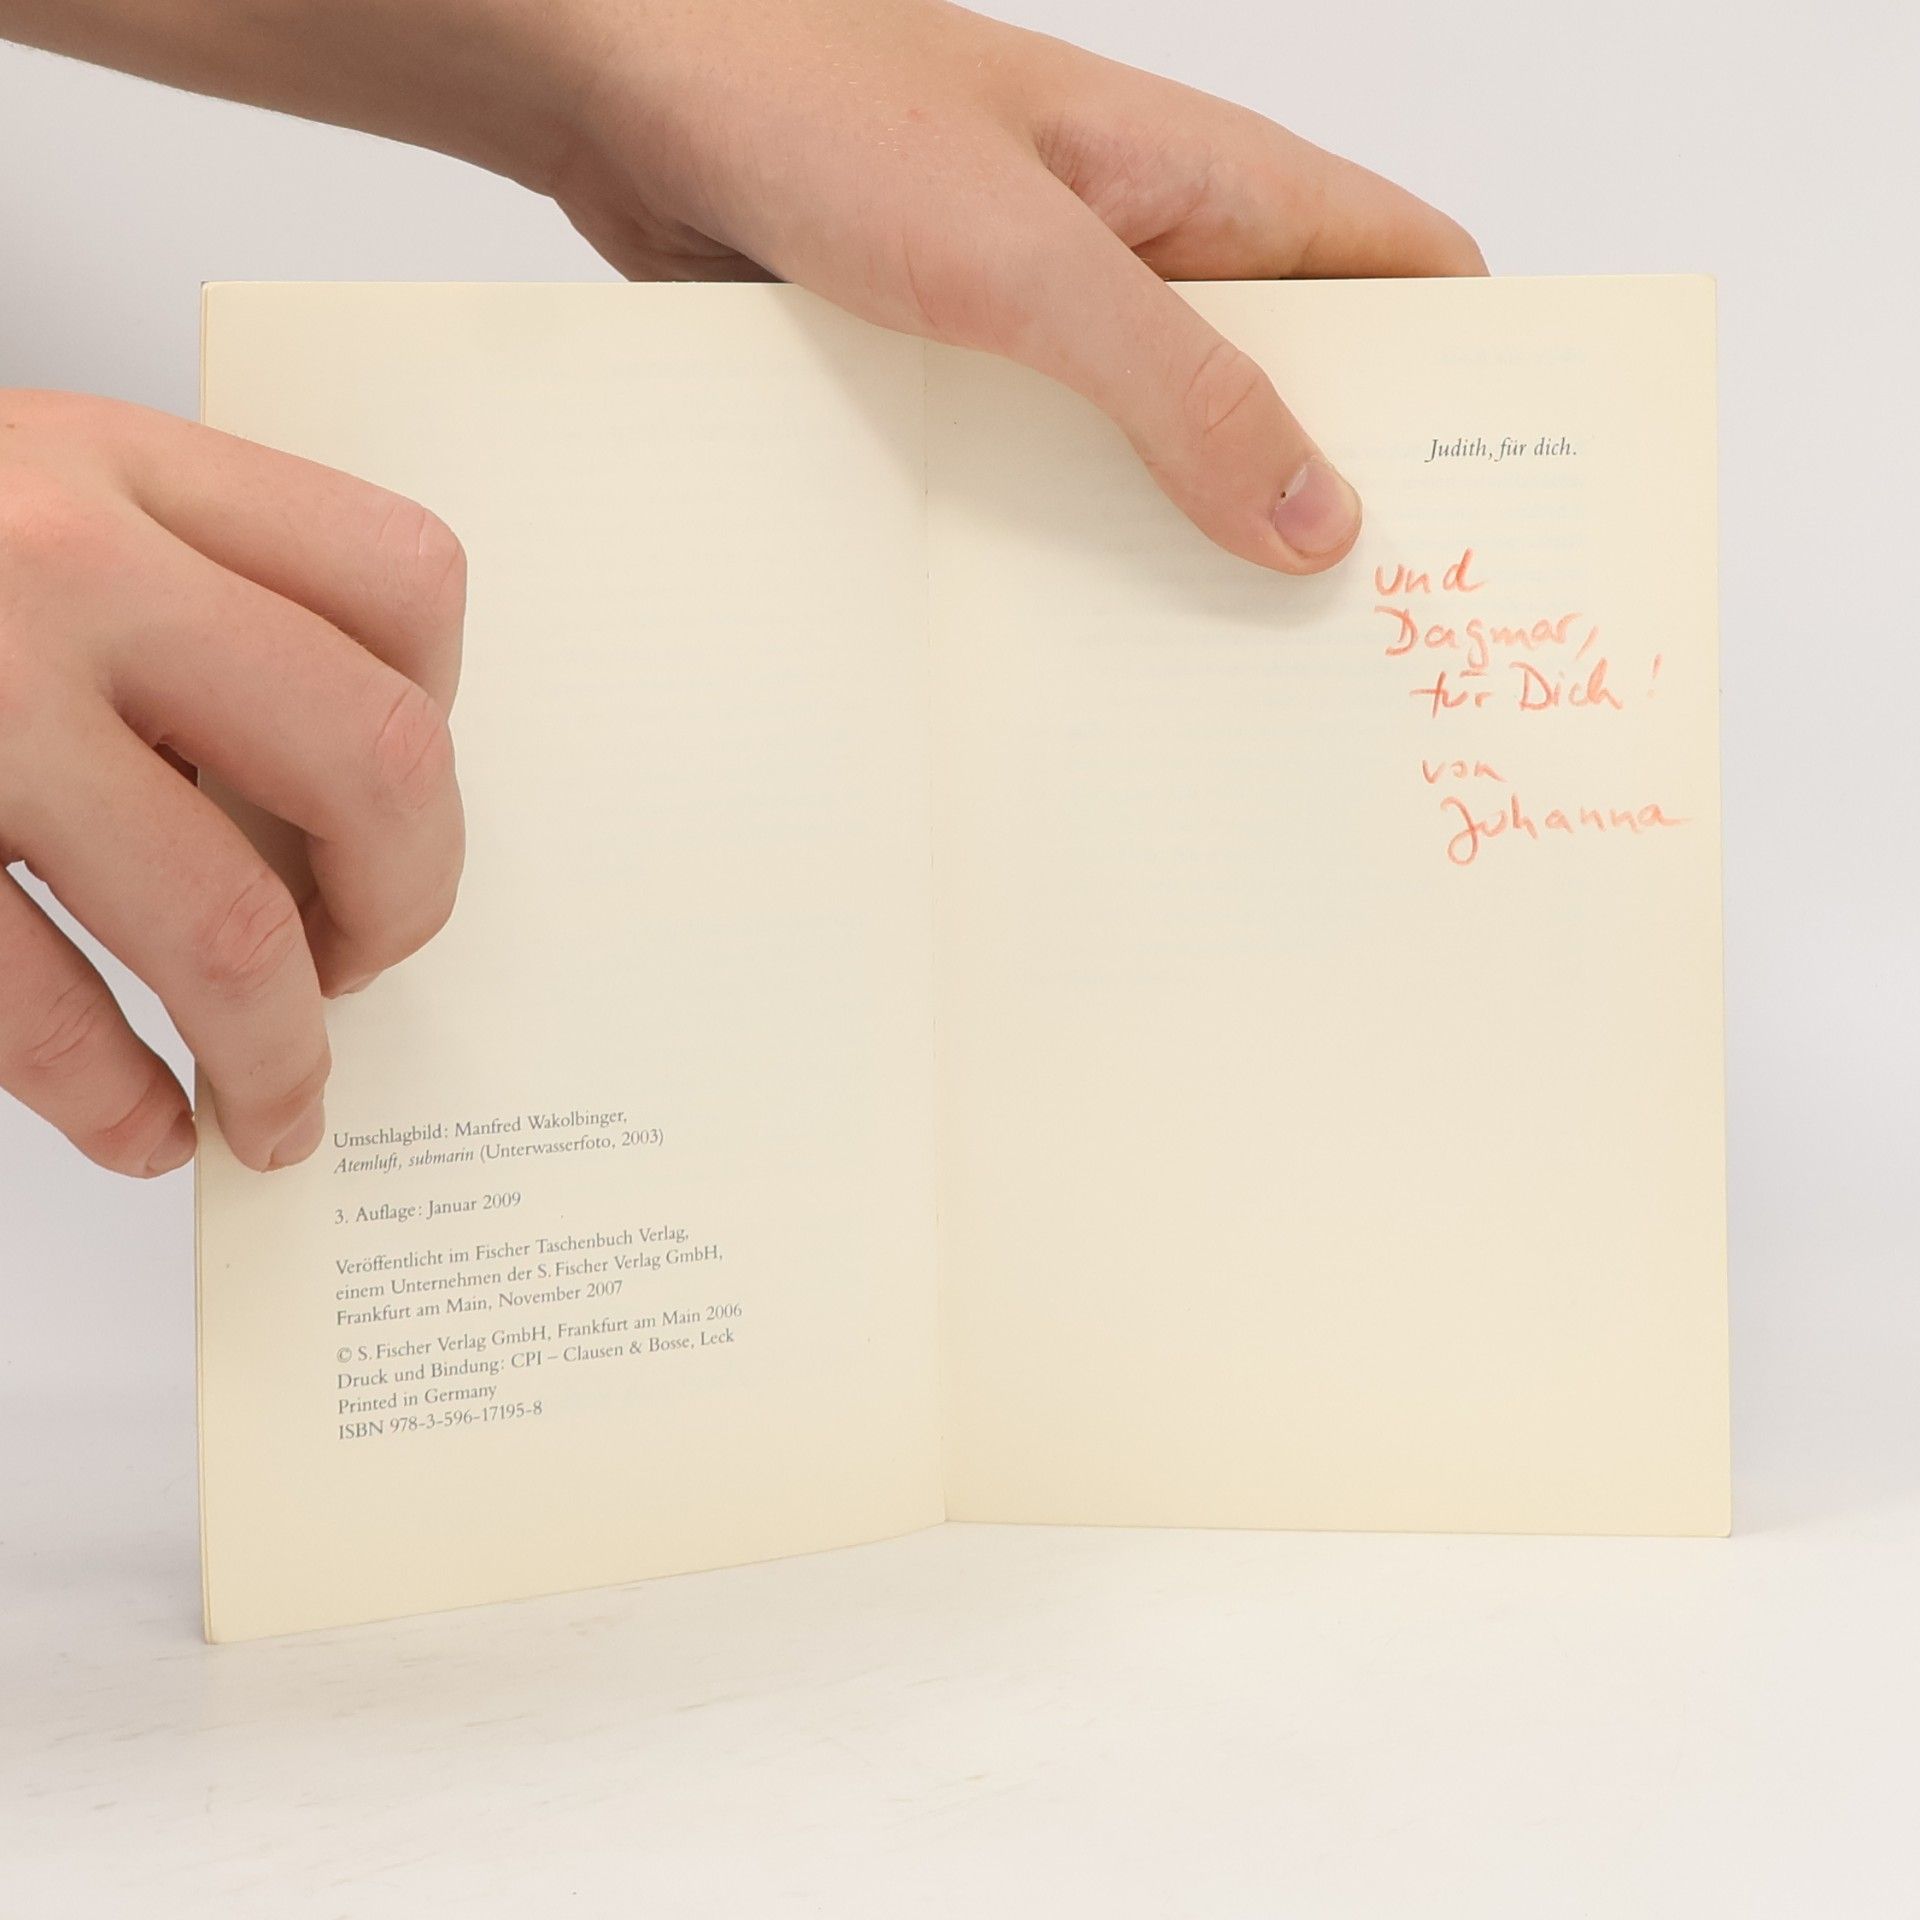 Umschlagbild: Manfred Wakolbinger,
Atemluft, submarin (Unterwasserfoto, 2003)
3. Auflage: Januar 2009
Veröffentlicht im Fischer Taschenbuch Verlag,
einem Unternehmen der S. Fischer Verlag GmbH,
Frankfurt am Main, November 2007
© S. Fischer Verlag GmbH, Frankfurt am Main 2006
Druck und Bindung: CPI – Clausen & Bosse, Leck
Printed in Germany
ISBN 978-3-596-17195-8
Judith, für dich.
und
Dagmar,
für Dich!
von
Johanna